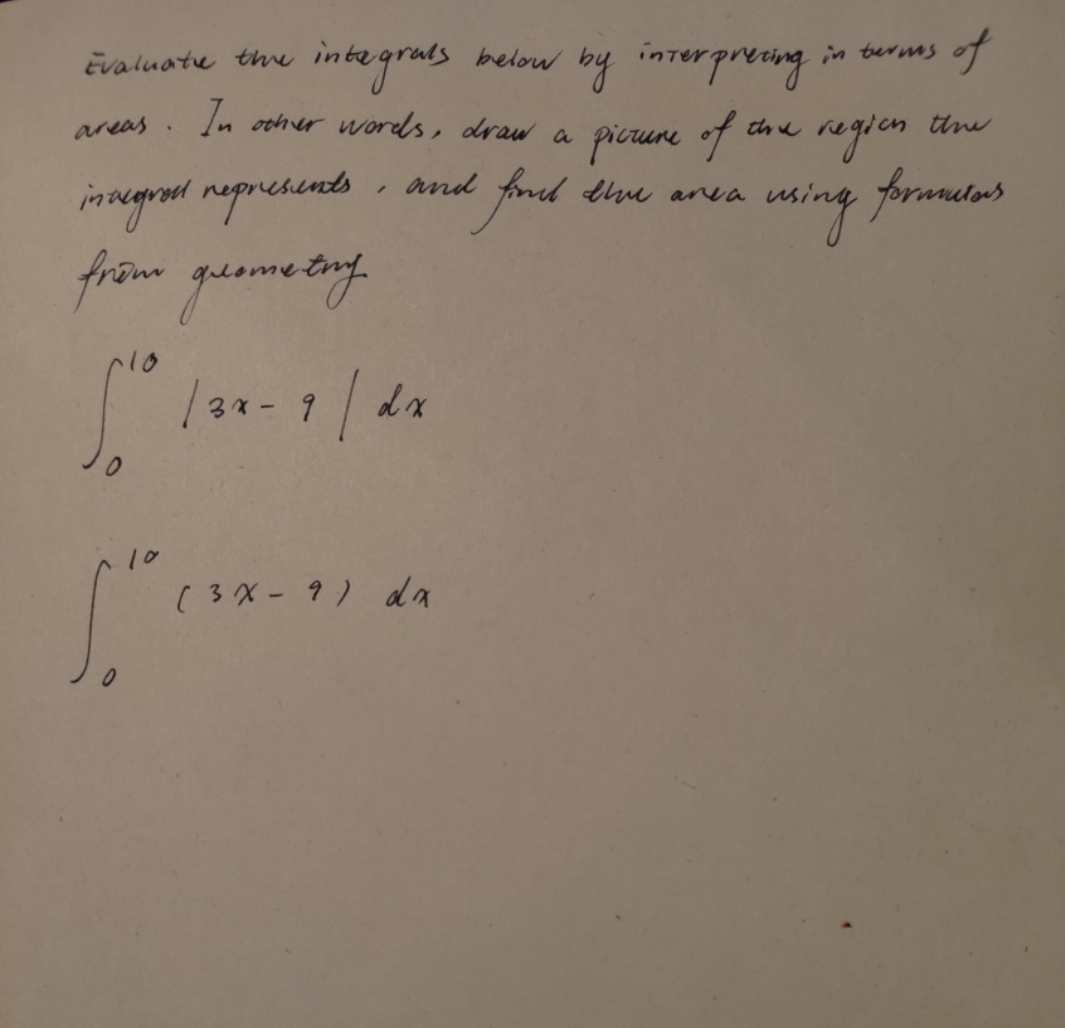 Evaluate the integrals below by interpreting in terms of
areas. In other words, draw a picture of the region the
integral represents, and find the area using formulas
from geometry
∫₀¹⁰ |3x - 9| dx
∫₀¹⁰ (3x - 9) dx